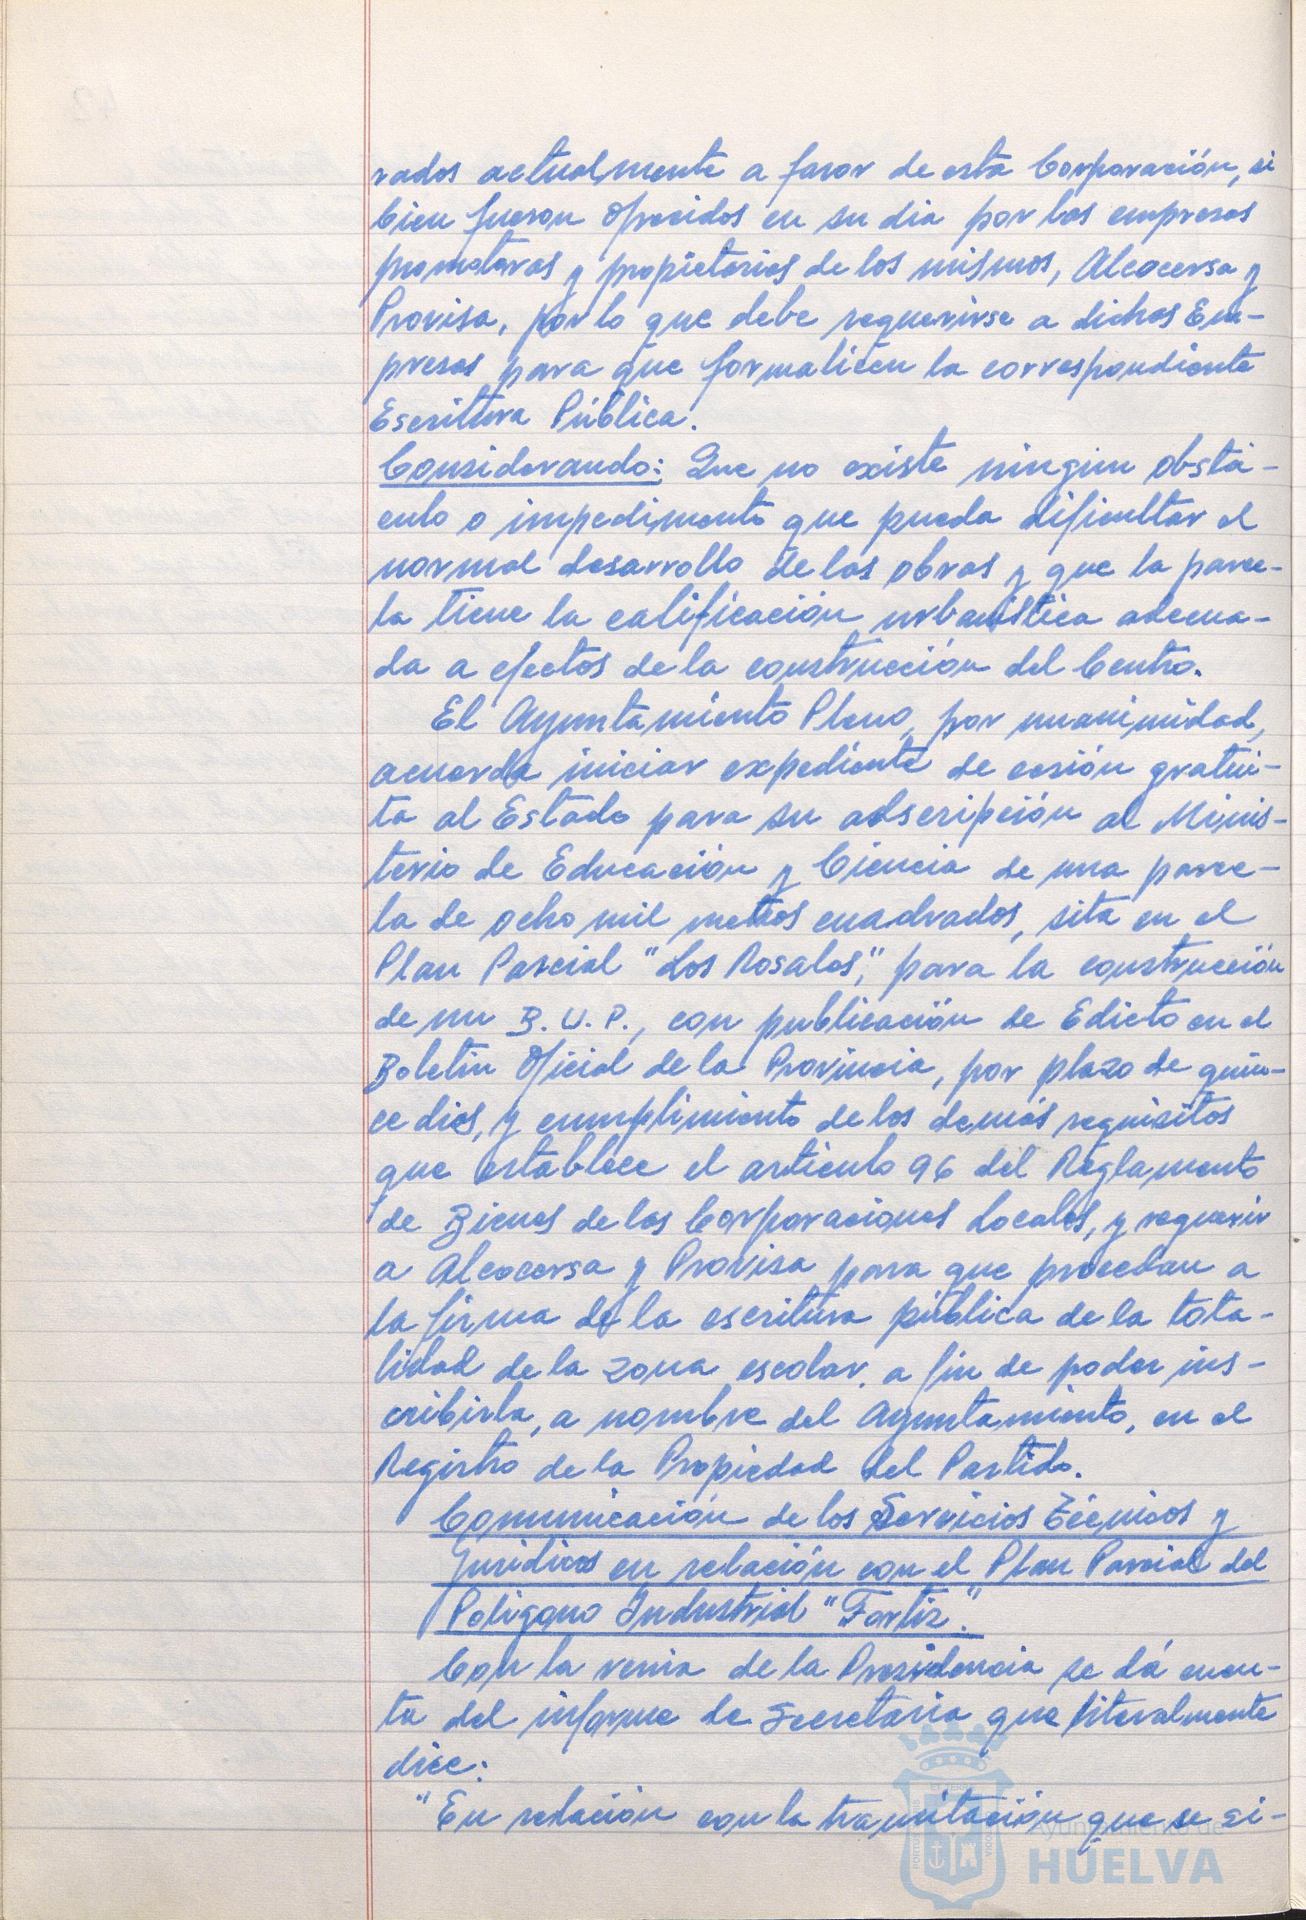 rados actualmente a favor de esta Corporación, si
bien fueron ofrecidos en su dia por las empresas
promotoras y propietarias de los mismos, Alcocersa y
Provisa, por lo que debe requerirse a dichas Em-
presas para que formalicen la correspondiente
Escritura Pública.
Considerando: Que no existe ningun obstá-
culo o impedimento que pueda dificultar el
normal desarrollo de las obras y que la parce-
la tiene la calificación urbanística adecua-
da a efectos de la construcción del Centro.
El Ayuntamiento Pleno, por unanimidad,
acuerda iniciar expediente de cesión gratui-
ta al Estado para su adscripción al Minis-
terio de Educación y Ciencia de una parce-
la de ocho mil metros cuadrados, sita en el
Plan Parcial "Los Rosales", para la construcción
de un B.U.P., con publicación de Edicto en el
Boletin Oficial de la Provincia, por plazo de quin-
ce dias, y cumplimiento de los demás requisitos
que establece el artículo 96 del Reglamento
de Bienes de las Corporaciones Locales, y requerir
a Alcocersa y Provisa para que procedan a
la firma de la escritura pública de la tota-
lidad de la zona escolar, a fin de poder ins-
cribirla, a nombre del Ayuntamiento, en el
Registro de la Propiedad del Partido.
Comunicación de los Servicios Técnicos y
Juridicos en relación con el Plan Parcial del
Poligono Industrial "Fortiz".
Con la venia de la Presidencia se dá cuen-
ta del informe de Secretaria que literalmente
dice:
"En relación con la tramitación que se si-
Ayuntamiento de
HUELVA